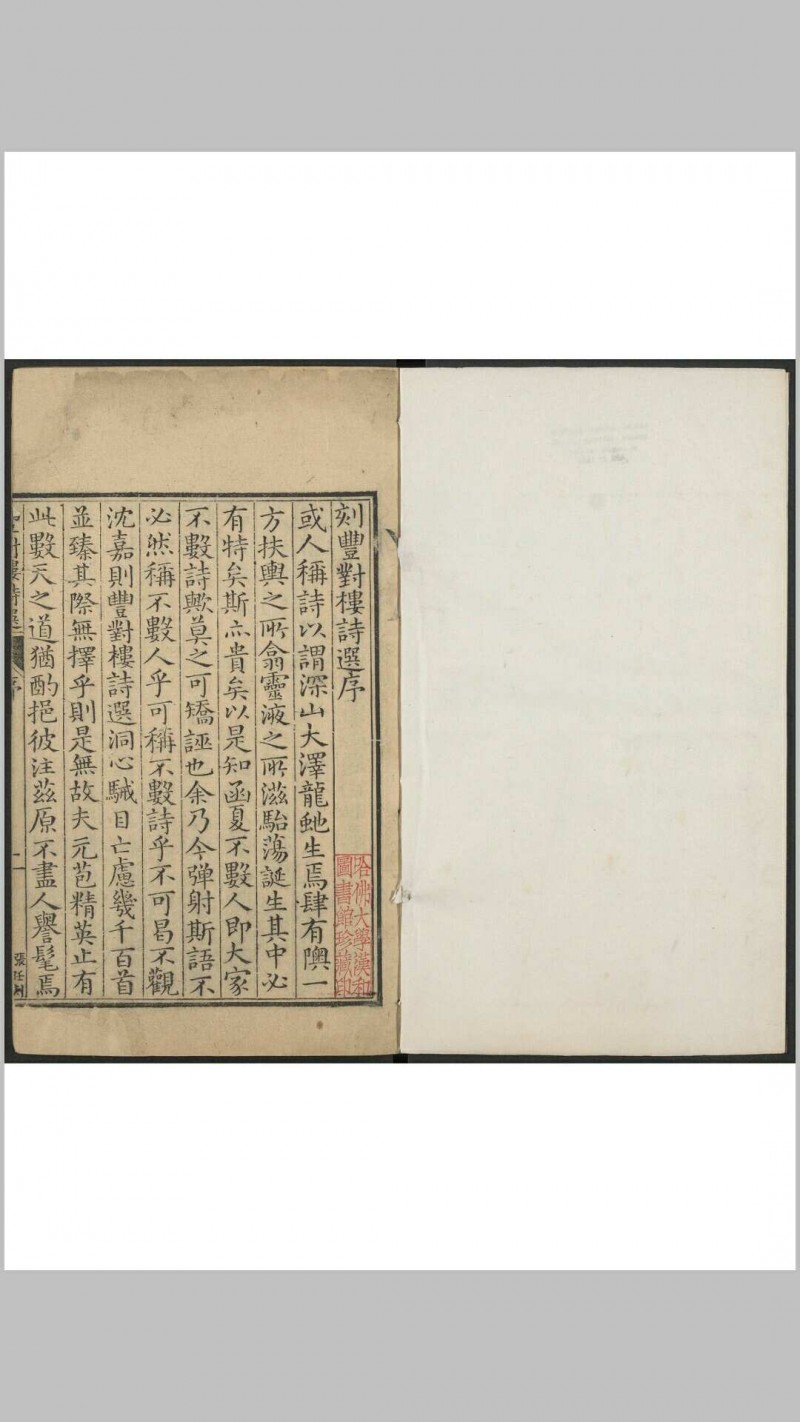 刻豐對樓詩選序
或人稱詩以謂深山大澤龍虵生焉肆有隩一
方扶輿之所翕靈液之所滋駘蕩誕生其中必
有特矣斯亦貴矣以是知函夏不數人即大家
不數詩歟莫之可矯誣也余乃今彈射斯語不
必然稱不數人乎可稱不數詩乎不可曷不觀
沈嘉則豐對樓詩選洞心駴目亡慮幾千百首
並臻其際無擇乎則是無故夫元苞精英止有
此數天之道猶酌挹彼注茲原不盡人譽髦焉
豐對樓詩選
序
一
張
哈佛大學漢和
圖書館珍藏印